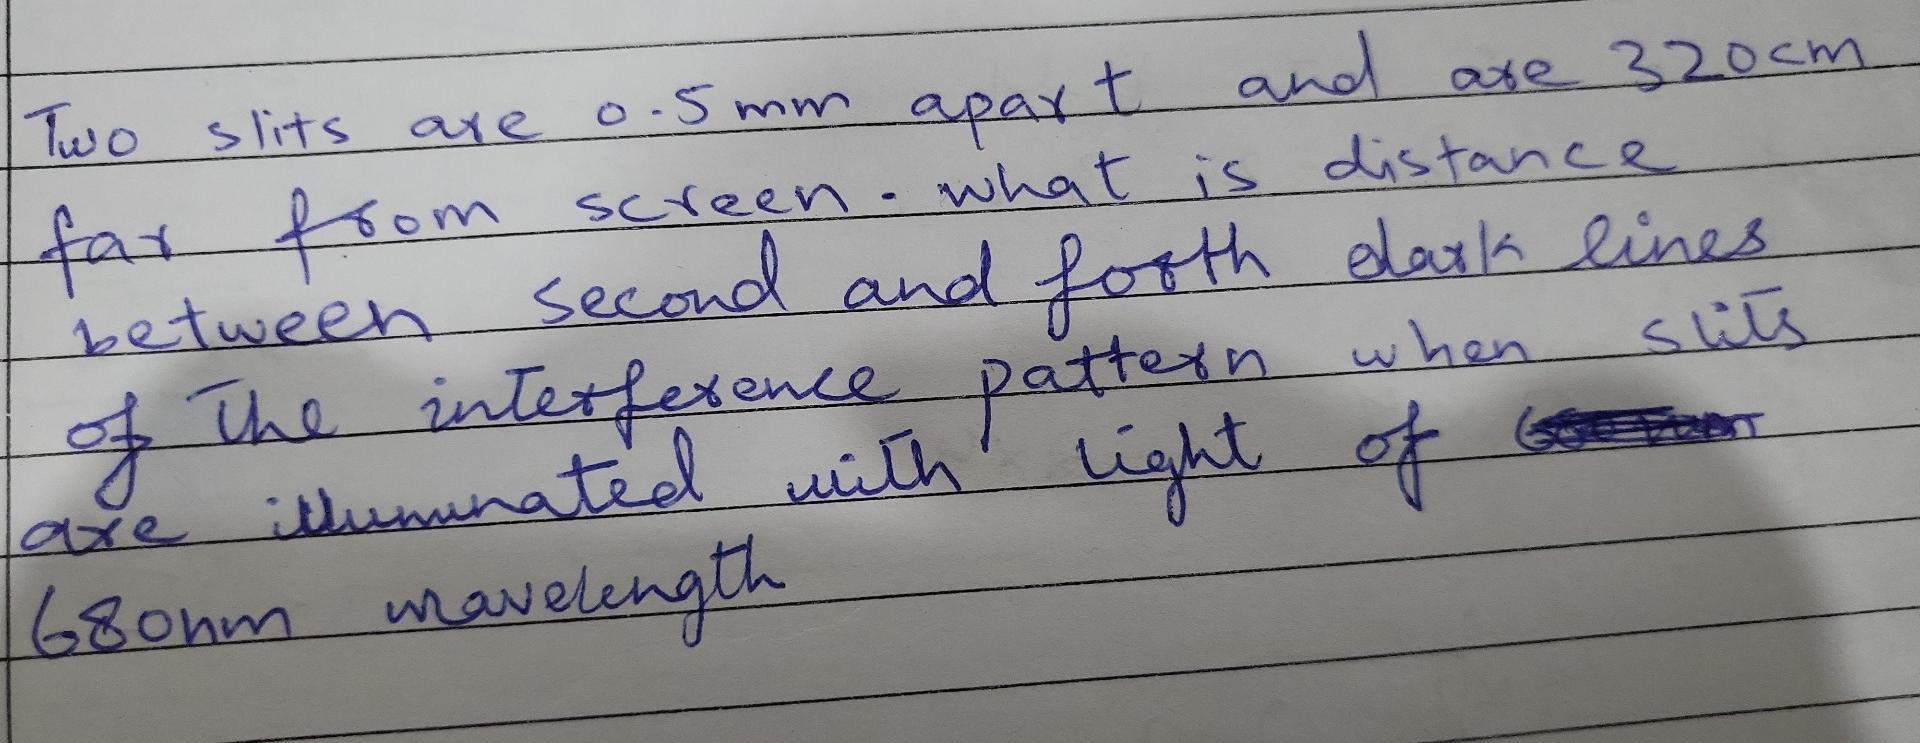 Two slits are 0.5mm apart and are 320cm
far from screen. what is distance
between second and forth dark lines
of the interference pattern when slits
are illuminated with light of
680nm wavelength